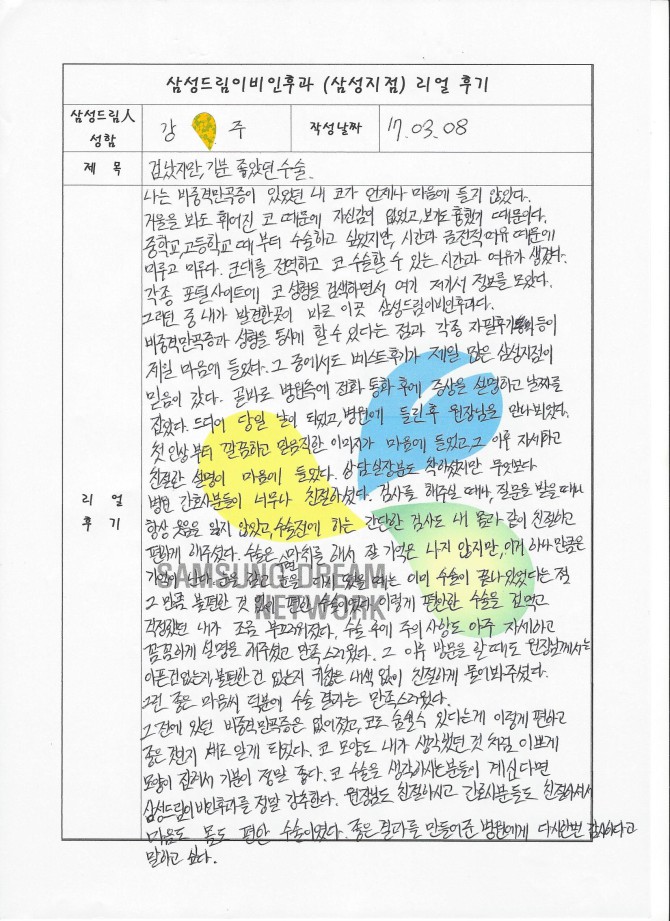 삼성드림이비인후과 (삼성지점) 리얼 후기
삼성드림人 성함
강 주
작성날짜
17.03.08
제 목
겁났지만, 기분 좋았던 수술.
리 얼
후 기
나는 비중격만곡증이 있었던 내 코가 언제나 마음에 들지 않았다.
거울을 봐도 휘어진 코 때문에 자신감이 없었고, 보기도 흉했기 때문이다.
중학교, 고등학교 때 부터 수술하고 싶었지만, 시간과 금전적 여유 때문에
미루고 미루다. 군대를 전역하고 코 수술할 수 있는 시간과 여유가 생겼다.
각종 포털사이트에 코 성형을 검색하면서 여기 저기서 정보를 모았다.
그러던 중 내가 발견한곳이 바로 이곳 삼성드림이비인후과다.
비중격만곡증과 성형을 동시에 할 수 있다는 점과 각종 자필후기 등이
제일 마음에 들었다. 그 중에서도 베스트후기가 제일 많은 삼성지점이
믿음이 갔다. 곧바로 병원측에 전화 통화 후에 증상을 설명하고 날짜를
잡았다. 드디어 당일 날이 되었고, 병원에 들린후 원장님을 만나뵈었다.
첫 인상부터 깔끔하고 믿음직한 이미지가 마음에 들었고, 그 이후 자세하고
친절한 설명이 마음에 들었다. 상담실장분도 착하셨지만 무엇보다
병원 간호사분들이 너무나 친절하셨다. 검사를 해주실 때나, 질문을 받을 때나
항상 웃음을 잃지 않았고, 수술전에 하는 간단한 검사도 내 몸과 같이 친절하고
편하게 해주셨다. 수술은 수면마취를 해서 잘 기억은 나지 않지만, 이거 하나 만큼은
기억이 난다. 눈을 감고 눈을 다시 떴을 때는 이미 수술이 끝나있었다는 점
그 만큼 불편한 것 없이 편한 수술이었다. 이렇게 편안한 수술을 겁먹고
걱정했던 내가 조금 부끄러워졌다. 수술 후에 주의 사항도 아주 자세하고
꼼꼼하게 설명을 해주셨고 만족스러웠다. 그 이후 방문을 할 때도 원장님께서는
아픈건없는지, 불편한 건 없는지 귀찮은 내색 없이 친절하게 물어봐주셨다.
그런 좋은 마음씨 덕분에 수술 결과는 만족스러웠다.
그 전에 있던 비중격만곡증은 없어졌고, 코로 숨쉴수 있다는게 이렇게 편하고
좋은 것인지 새로 알게 되었다. 코 모양도 내가 생각했던 것 처럼 이쁘게
모양이 잡혀서 기분이 정말 좋다. 코 수술을 생각하시는분들이 계신다면
삼성드림이비인후과를 정말 강추한다. 원장님도 친절하시고 간호사분들도 친절하셔서
마음도 몸도 편안 수술이였다. 좋은 결과를 만들어준 병원에게 다시한번 감사하다고
말하고 싶다.
SAMSUNG DREAM
NETWORK